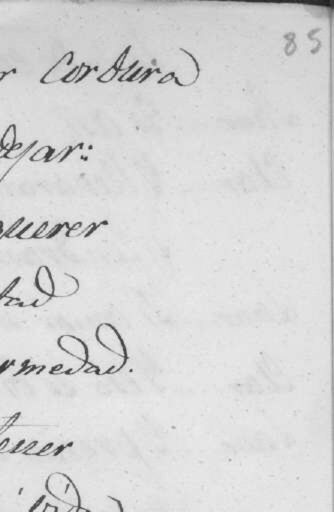 85
r cordura
dejar:
querer
tad
ermedad.
tener
vida